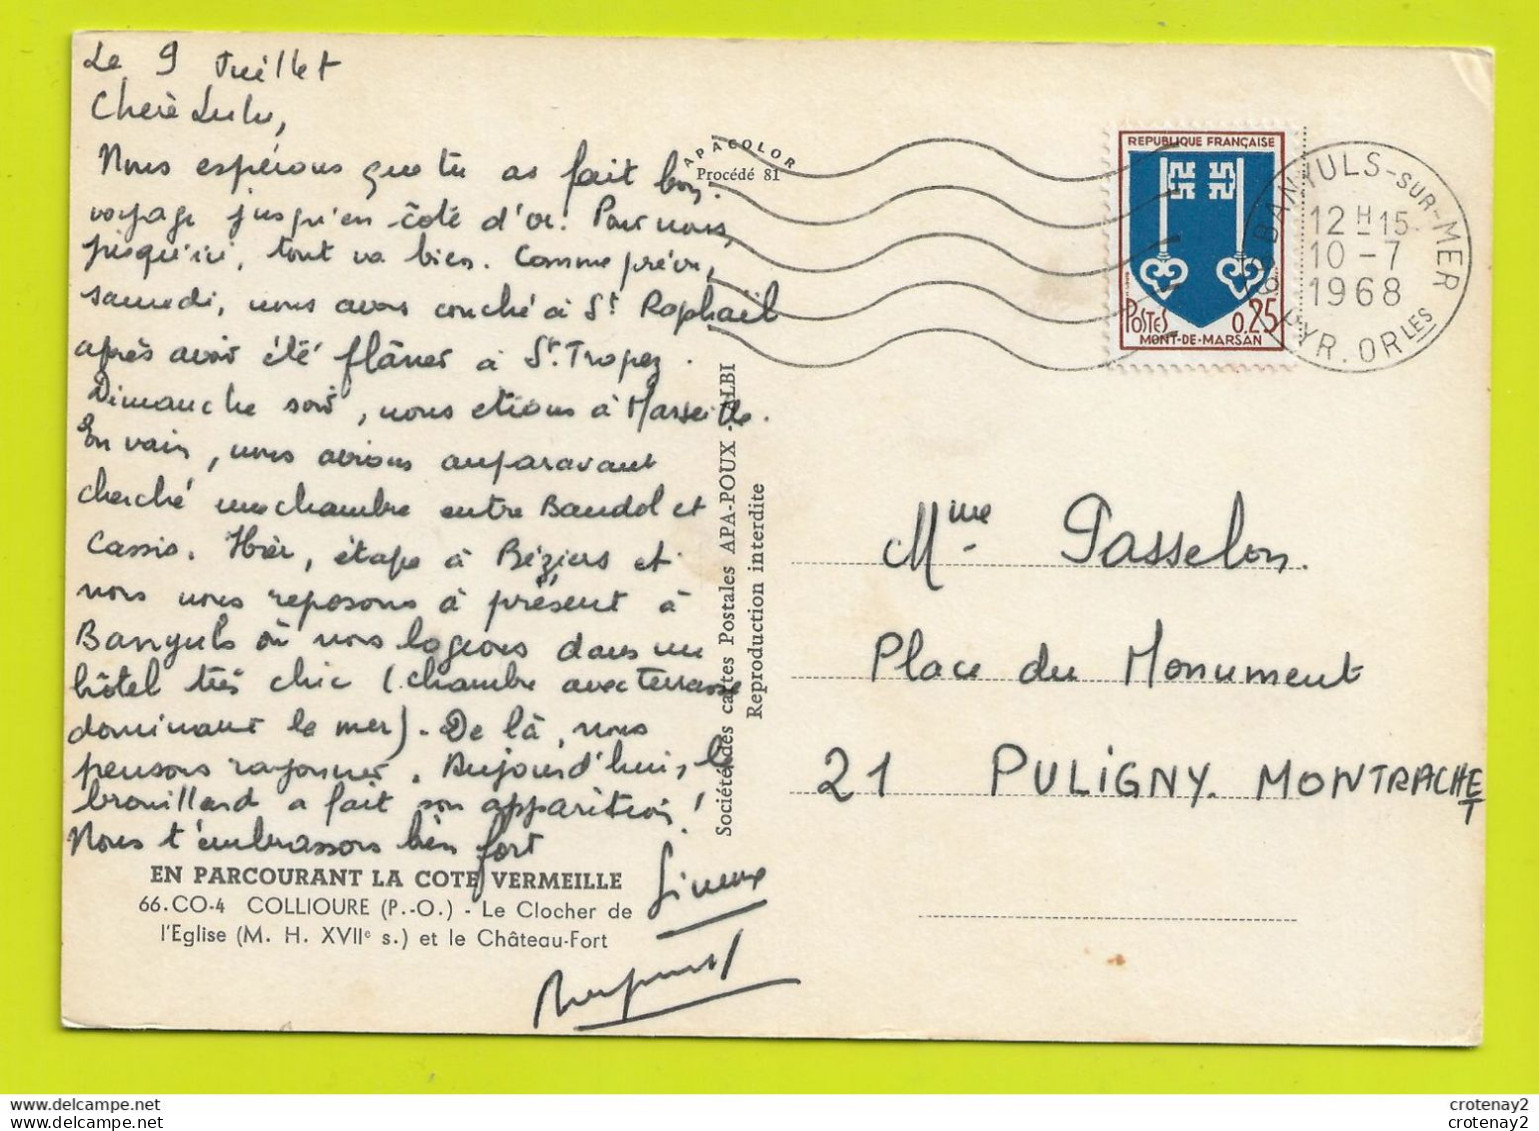 Le 9 Juillet
Chère Lulu,
Nous espérons que tu as fait bon
voyage jusqu'en côte d'or. Pour nous,
jusqu'ici, tout va bien. Comme prévu,
samedi, nous avons couché à St Raphaël
après avoir été flâner à St. Tropez.
Dimanche soir, nous etions à Marseille.
En vain, nous avions auparavant
cherché une chambre entre Bandol et
Cassis. Hier, étape à Béziers et
nous nous reposons à présent à
Banyuls où nous logeons dans un
hôtel très chic (chambre avec terrasse
dominant la mer). De là, nous
pensons rayonner. Aujourd'hui, le
brouillard a fait son apparition!
Nous t'embrassons bien fort
EN PARCOURANT LA COTE VERMEILLE
66.CO-4 COLLIOURE (P.-O.) - Le Clocher de
l'Eglise (M. H. XVIIe s.) et le Château-Fort
APACOLOR
Procédé 81
Société des cartes Postales APA-POUX - ALBI
Reproduction interdite
REPUBLIQUE FRANÇAISE
POSTES 0,25
MONT-DE-MARSAN
66 BANYULS-SUR-MER
12 H 15
10 - 7
1968
PYR. ORLES
Mme Passelon.
Place du Monument
21 PULIGNY. MONTRACHET
crotenay2
crotenay2